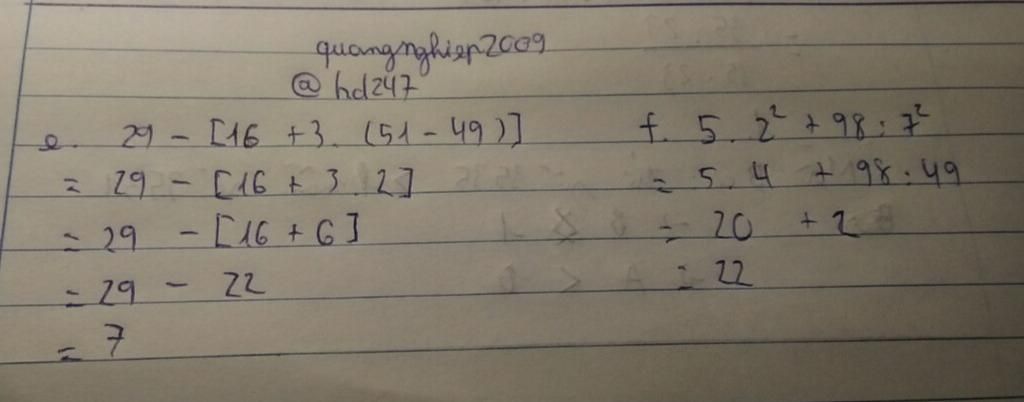 quangnghiep2009
@hd247
e. 29 - [16 + 3. (51 - 49)]
= 29 - [16 + 3.2]
= 29 - [16 + 6]
= 29 - 22
= 7
f. 5. 2² + 98 : 7²
= 5.4 + 98 : 49
= 20 + 2
= 22